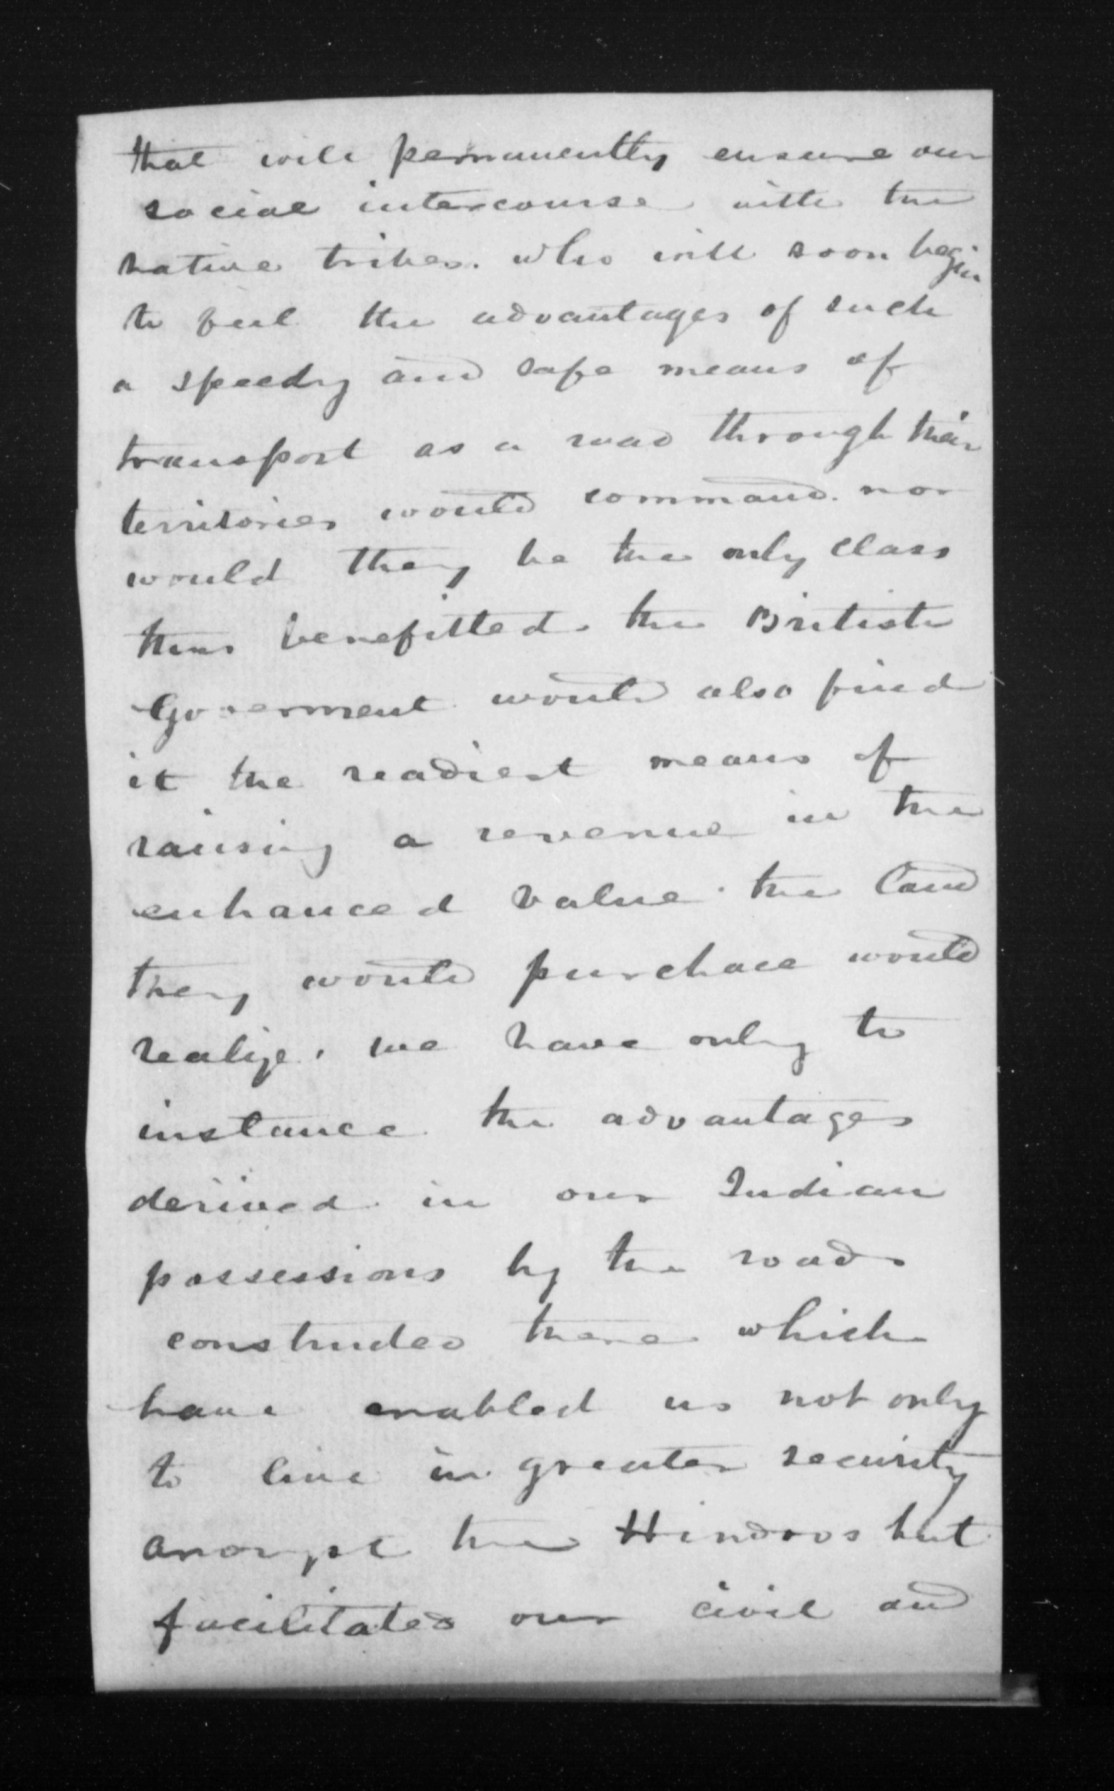 that will permanently ensure our
social intercourse with the
native tribes. who will soon begin
to feel the advantages of such
a speedy and safe means of
transport as a road through their
territories would command. nor
would they be the only class
thus benefitted. the British
Goverment would also find
it the readiest means of
raising a revenue in the
enhanced value the land
they would purchace would
realize. we have only to
instance the advantages
derived in our Indian
possessions by the roads
constructed there which
have enabled us not only
to live in greater security
amongst the Hindoos but
facilitated our civil and